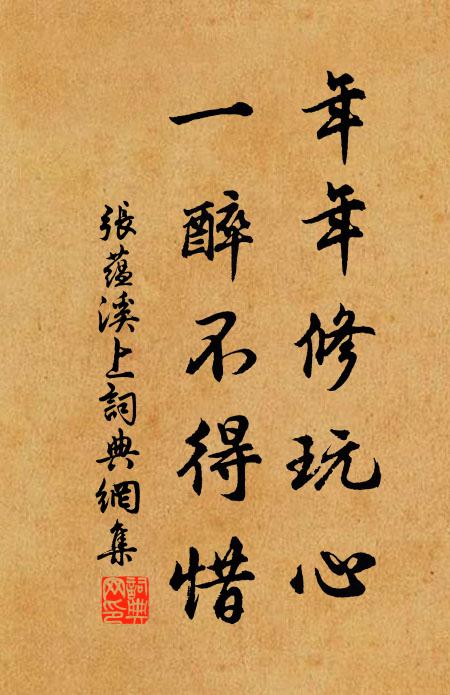 年年修玩心
一醉不得惜
張蘊溪上詞典網集
詞典網印